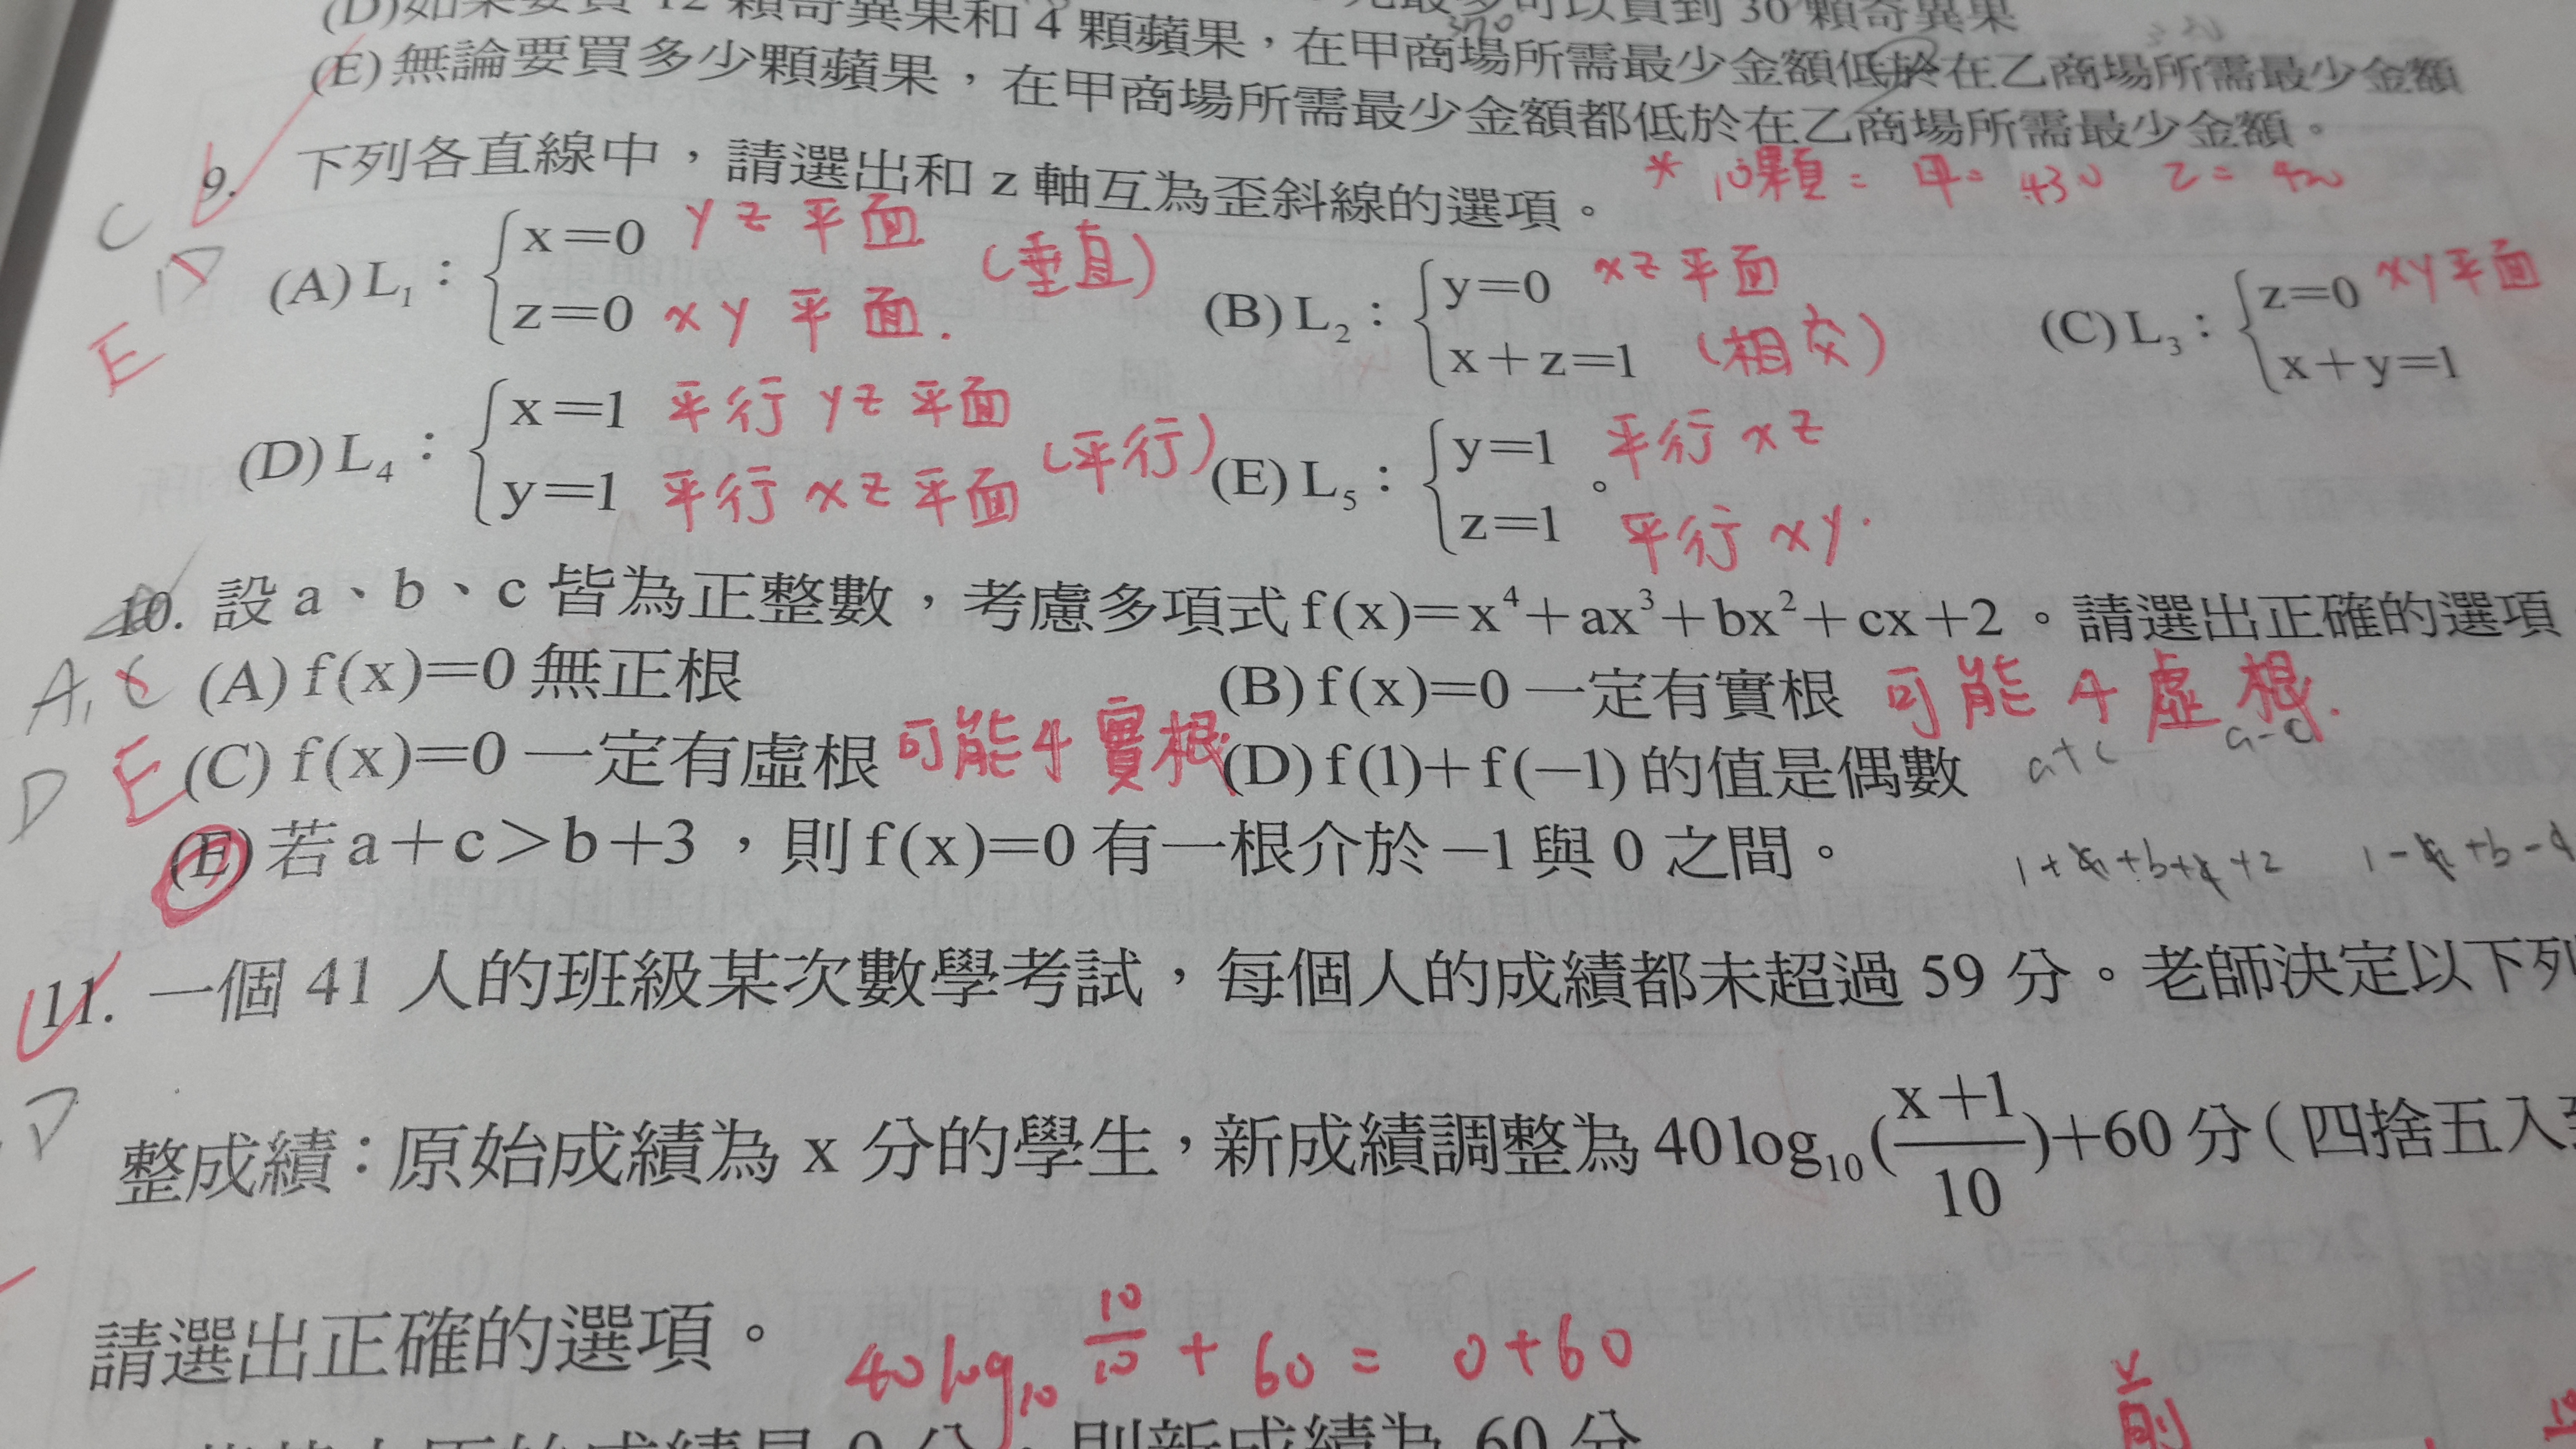 (D)如果要買 12 顆奇異果和 4 顆蘋果，在甲商場所需最少金額低於在乙商場所需最少金額
元最多可以買到 30 顆奇異果
(E)無論要買多少顆蘋果，在甲商場所需最少金額都低於在乙商場所需最少金額。
* 10顆= 甲= 430
9. 下列各直線中，請選出和 z 軸互為歪斜線的選項。
C
D
E
(A) L₁：{x=0 yz 平面
z=0 xy 平面. (垂直)
(B) L₂：{y=0 xz 平面
x+z=1 (相交)
(C) L₃：{z=0 xy平面
x+y=1
(D) L₄：{x=1 平行 yz 平面
y=1 平行 xz 平面 (平行)
(E) L₅：{y=1 平行 xz
z=1 。 平行 xy.
10. 設 a、b、c 皆為正整數，考慮多項式 f(x)=x⁴+ax³+bx²+cx+2。請選出正確的選項
A, C
D E
(A) f(x)=0 無正根
(B) f(x)=0 一定有實根 可能 4 虛根.
(C) f(x)=0 一定有虛根 可能4實根
(D) f(1)+f(−1) 的值是偶數 a+c a-c
(E) 若 a+c>b+3，則 f(x)=0 有一根介於 −1 與 0 之間。
1+a+b+c+2 1-a+b-c
11. 一個 41 人的班級某次數學考試，每個人的成績都未超過 59 分。老師決定以下列
D
整成績：原始成績為 x 分的學生，新成績調整為 40log₁₀((x+1)/10)+60 分（四捨五入到
請選出正確的選項。
40log₁₀ 10/10 + 60 = 0+60
原始成績是 9 分，則新成績為 60 分